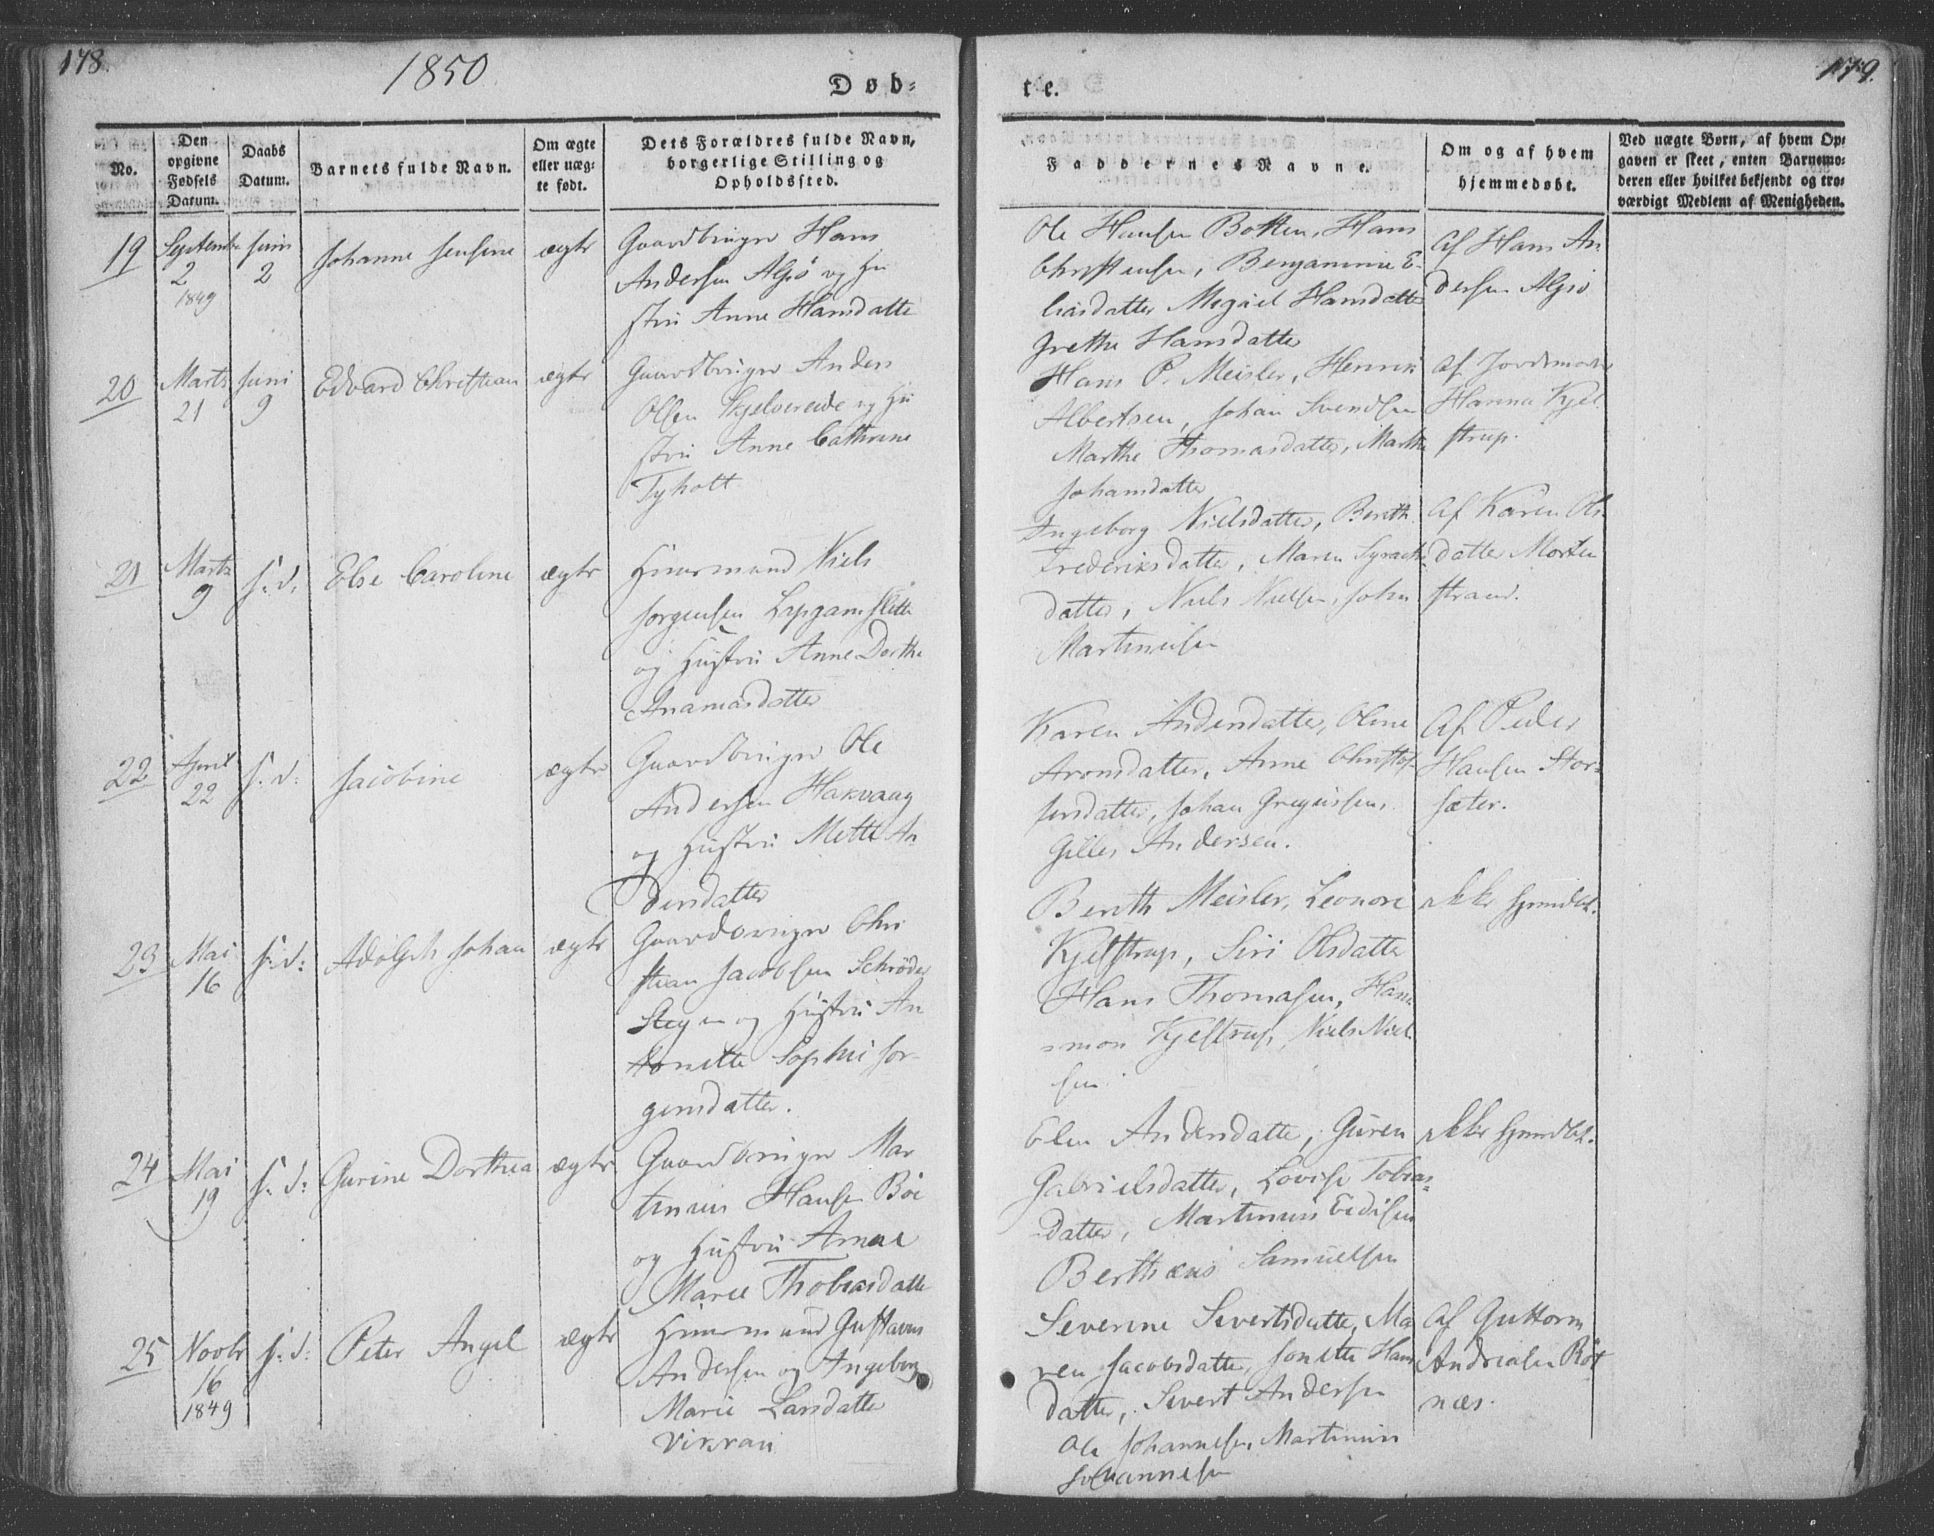 178.
1850
Døb-
No.
Den opgivne Fødsels Datum.
Daabs Datum.
Barnets fulde Navn.
Om ægte eller uægte født.
Dets Forældres fulde Navn, borgerlige Stilling og Opholdssted.
19
September
2
1849
Juni
2
Johanne Jensine
ægte
Gaardbruger Hans
Andersen Algiø og Hu
stru Anne Hansdatter
20
Marts
21
Juni
9
Edvard Christian
ægte
Gaardbruger Anders
Olsen Skjelvereide og Hu
stru Anne Cathrine
Tyholt
21
Marts
9
s. d.
Else Caroline
ægte
Huusmand Niels
Jorgensen
og Hustru Anne Dorthe
Ananiasdatter
22
April
22
s. d.
Jacobine
ægte
Gaardbruger Ole
Andersen Hakvaag
og Hustru Mette An
dersdatter
23
Mai
16
s. d.
Adolph Johan
ægte
Gaardbruger Chri
stian Jacobsen Schrøder
Stegen og Hustru An
tonette Sophie Jør-
gensdatter.
24
Mai
19
s. d.
Gurine Dorthea
ægte
Gaardbruger Mar
tinus Hansen Bøe
og Hustru Anne
Marie Thobiasdatter
25
Novbr
16
1849
s. d.
Peter Angel
ægte
Huusmand Gustavus
Andersen og Ingeborg
Marie Larsdatter
Vikran
179.
te.
Faddernes Navne.
Om og af hvem hjemmedøbt.
Ved uægte Børn, af hvem Op-
gaven er skeet, enten Barnemo-
deren eller hvilket bekjendt og tro-
værdigt Medlem af Menigheden.
Ole Hansen Botten, Hans
Christensen, Benjamine E-
liasdatter Hansdatter
Grethe Hansdatter
Af Hans An
dersen Algiø
Hans P. Meisler, Henrik
Albertsen, Johan Svendsen
Marthe Thomasdatter, Marthe
Johansdatter
Af Jordmoder
Hanna Kjel
strup.
Ingeborg Nielsdatter, Bereth
Frederiksdatter, Maren
datter, Niels Nielsen, John
Martinusen
Af Karen Ols
datter Morten
strand.
Karen Andersdatter, Oline
Aronsdatter, Anne Christof-
fersdatter, Johan Gregusssen,
Gilles Andersen.
Af Peder
Hansen Stor-
sæter.
Bereth Meisler, Leonore
Kjelstrup, Siri Olsdatter
Hans Thomasen, Hans
Kjelstrup, Niels Niel
sen.
ikke hjemdøbt.
Elen Andersdatter, Guren
Gabrielsdatter, Lovise Tobias-
datter, Martinus Eidisen
Bertheus Samuelsen
ikke hjemdøbt.
Severine Sivertsdatter, Ma
ren Jacobsdatter, Jonette Hans
datter, Sivert Andersen
Ole Johannesen, Martinus
Johannesen
Af Guttorm
Andreasen Røt
næs.